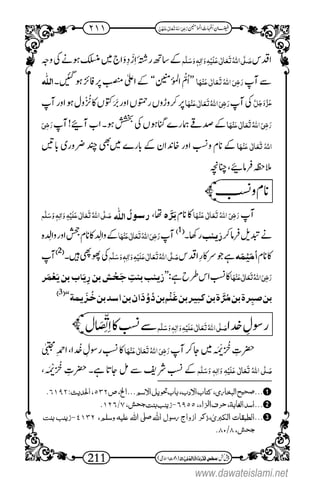 فیضان اُمہات المؤمنین رَضِیَ اللّٰہُ تَعَالٰی عَنْہُنَّ ٢١١
اقدس صَلَّی اللّٰہُ تَعَالٰی عَلَیْہِ وَاٰلِہٖ وَسَلَّم کے ساتھ رشتۂ اِزْدِواج میں منسلک ہونے کی وجہ
سے آپ رَضِیَ اللّٰہُ تَعَالٰی عَنْہَا ”اُمُّ المؤمنین“ کے اعلیٰ منصب پر فائز ہو گئیں۔ اللّٰہ
عَزَّوَجَلَّ کی آپ رَضِیَ اللّٰہُ تَعَالٰی عَنْہَا پر کروڑوں رحمتوں اور برکتوں کا نُزُول ہو اور آپ
رَضِیَ اللّٰہُ تَعَالٰی عَنْہَا کے صدقے ہمارے گناہوں کی بخشش ہو۔ اب آئیے! آپ رَضِیَ
اللّٰہُ تَعَالٰی عَنْہَا کے نام ونسب اور خاندان کے بارے میں بھی چند ضروری باتیں
ملاحظہ فرمائیے، چنانچہ
نام ونسب
آپ رَضِیَ اللّٰہُ تَعَالٰی عَنْہَا کا نام بَرَّہ تھا، رسول اللّٰہ صَلَّی اللّٰہُ تَعَالٰی عَلَیْہِ وَاٰلِہٖ وَسَلَّم
نے تبدیل فرما کر زینب رکھا۔(1) آپ رَضِیَ اللّٰہُ تَعَالٰی عَنْہَا کے والد کا نام جحش اور والدہ
کا نام اُمَیْمَہ ہے جو سرکارِ اقدس صَلَّی اللّٰہُ تَعَالٰی عَلَیْہِ وَاٰلِہٖ وَسَلَّم کی پھوپھی ہیں۔(2) آپ
رَضِیَ اللّٰہُ تَعَالٰی عَنْہَا کا نسب اس طرح ہے: ”زینب بنتِ جَحْش بن رِیَاب بن یَعْمَر
بن صبرۃ بن مُرَّۃ بن کبیر بن غَنْم بن دُوْدَان بن اسد بن خُزیمۃ“(3)
رسولِ خدا صَلَّی اللّٰہُ تَعَالٰی عَلَیْہِ وَاٰلِہٖ وَسَلَّم سے نسب کا اِتِّصال
حضرتِ خُزَیْمَہ میں جا کر آپ رَضِیَ اللّٰہُ تَعَالٰی عَنْہَا کا نسب رسولِ خُدا، احمدِ مجتبیٰ
صَلَّی اللّٰہُ تَعَالٰی عَلَیْہِ وَاٰلِہٖ وَسَلَّم کے نسب شریف سے مل جاتا ہے۔ حضرتِ خُزَیْمَہ،
1…صحیح البخاری، کتاب الادب، باب تحویل الاسم…الخ، ص١٥٣٢، الحدیث: ٦١٩٢.
2…اسد الغابۃ، حرف الزاء، ٦٩٥٥-زینب بنت جحش، ١٢٦/٧.
3…الطبقات الکبریٰ، ذکر ازواج رسول اللّٰہ صلی اللّٰہ علیہ وسلم، ٤١٣٢-زینب بنت
جحش، ٨٠/٨.
211
www.dawateislami.net